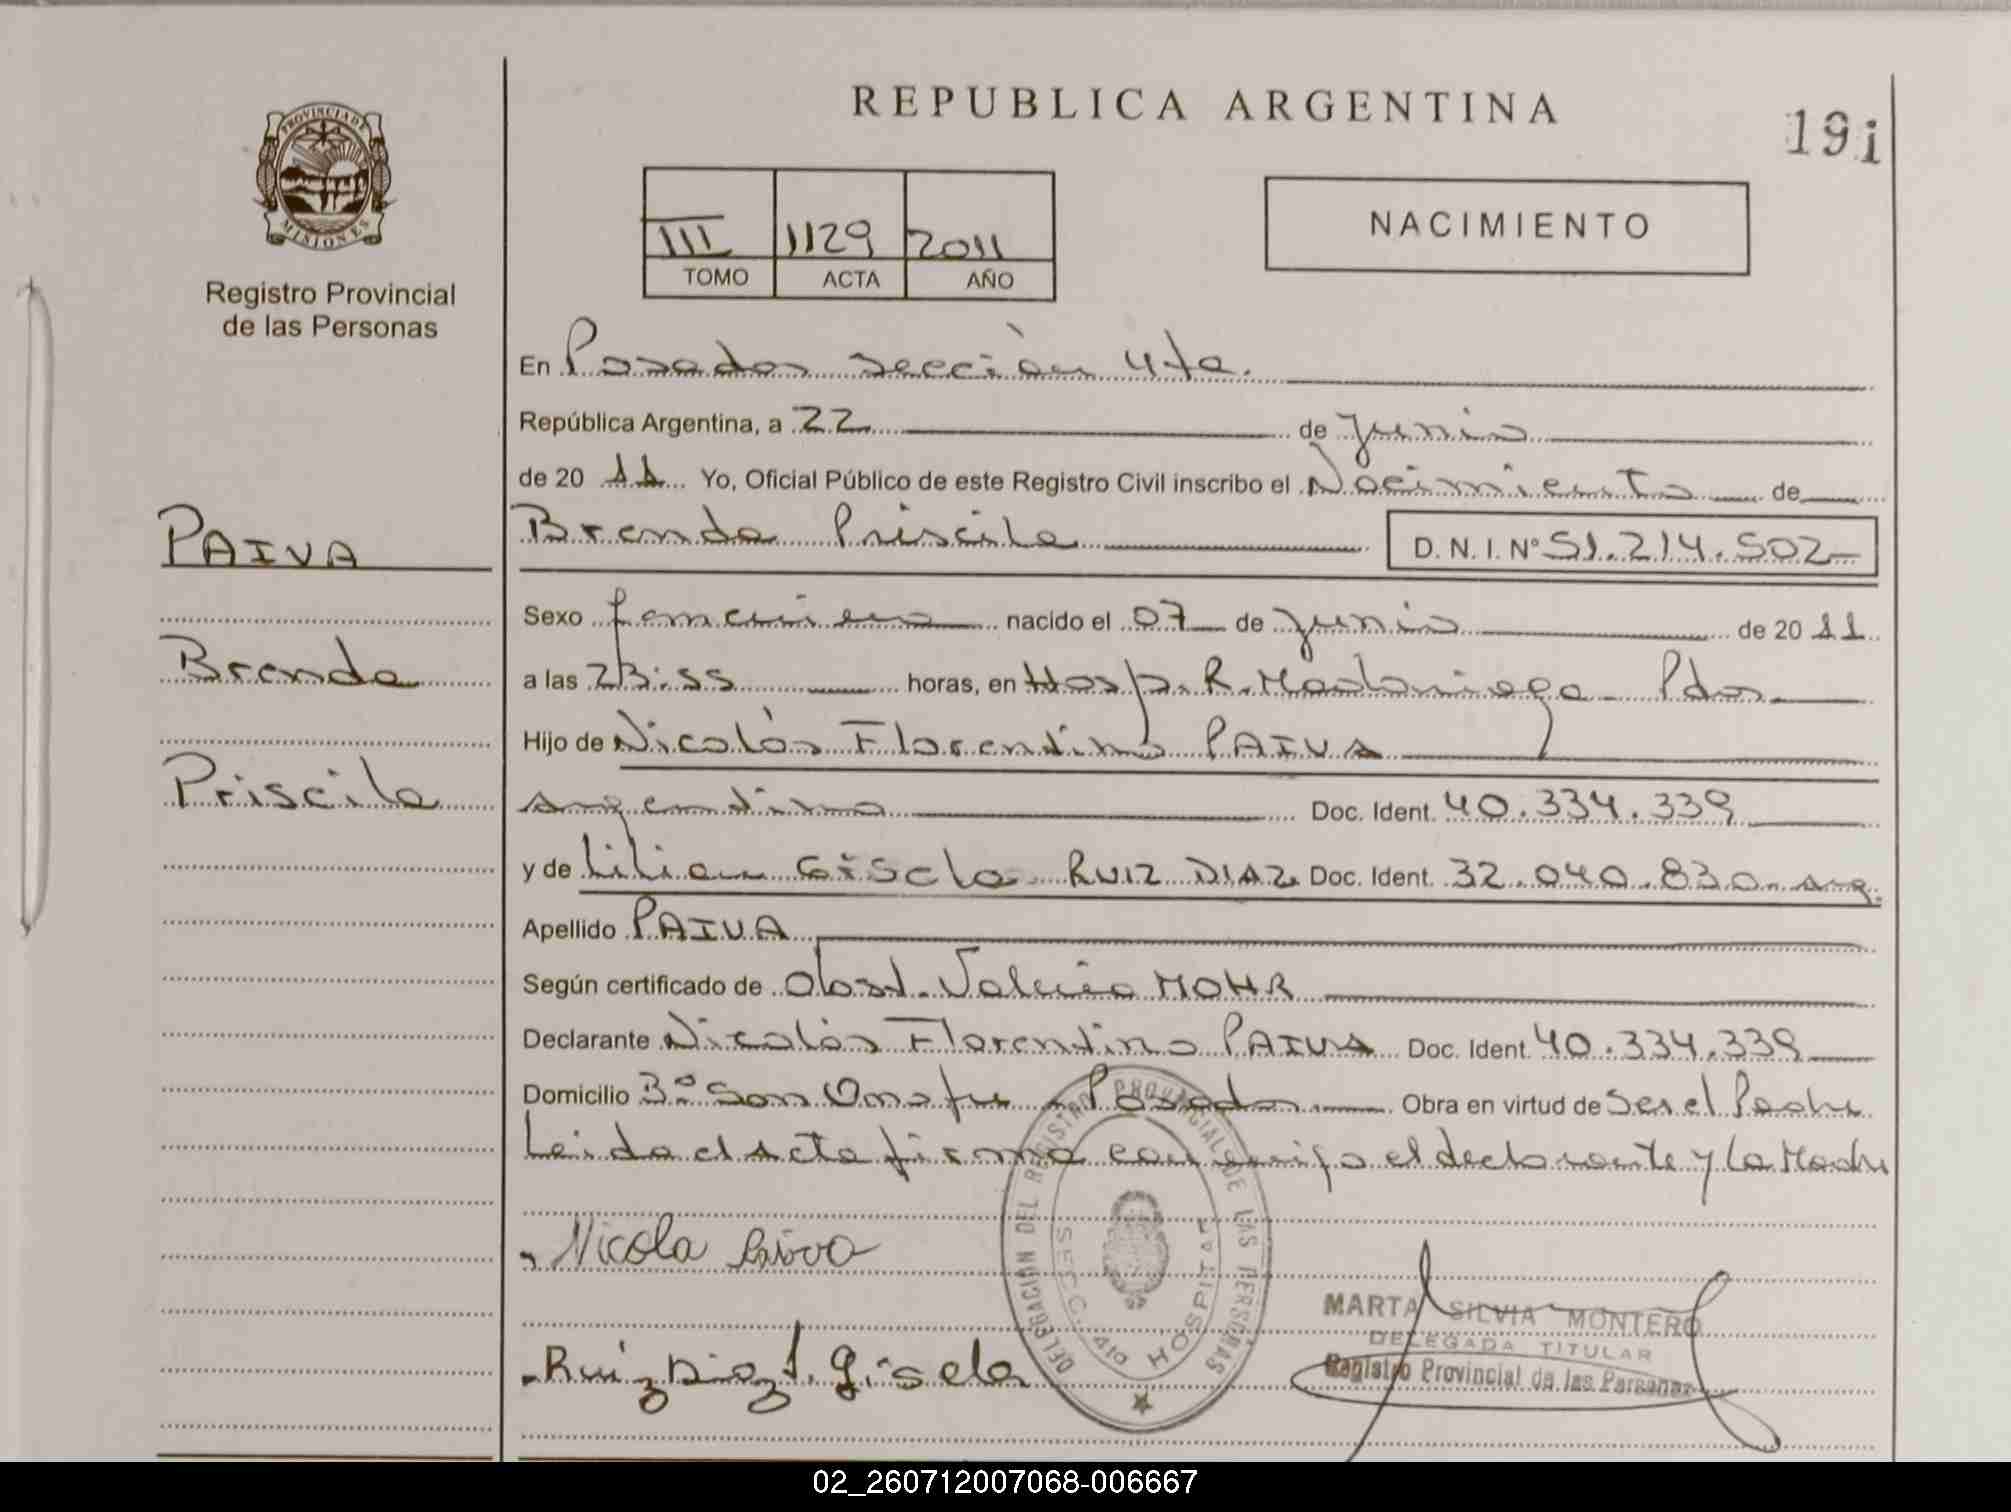 REPUBLICA ARGENTINA
191
PROVINCIA DE
MISIONES
Registro Provincial
de las Personas
III 1129 2011
TOMO ACTA AÑO
NACIMIENTO
En Posadas sección 4ta.
República Argentina, a 22 de Junio
de 20 11 Yo, Oficial Público de este Registro Civil inscribo el Nacimiento de
Brenda Priscila D.N.I. Nº 51.214.502
PAIVA
Brenda
Priscila
Sexo femenino nacido el 07 de Junio de 20 11
a las 23:55 horas, en Hosp. R. Madariaga Pdas
Hijo de Nicolás Florentino PAIVA
argentino Doc. Ident. 40.334.339
y de Lilian Gisela RUIZ DIAZ Doc. Ident. 32.040.830 - arg.
Apellido PAIVA
Según certificado de Obst. Valeria MOHR
Declarante Nicolás Florentino PAIVA Doc. Ident 40.334.339
Domicilio Bº San Onofre - Posadas Obra en virtud de Ser el Padre
Leida el acta firma conmigo el declarante y la Madre
Nicola Paiva
Ruiz Diaz L. Gisela
DELEGACIÓN DEL REGISTRO PROVINCIAL DE LAS PERSONAS
SECC. 4ta HOSPITAL
MARTA SILVIA MONTERO
DELEGADA TITULAR
Registro Provincial de las Personas
02_260712007068-006667